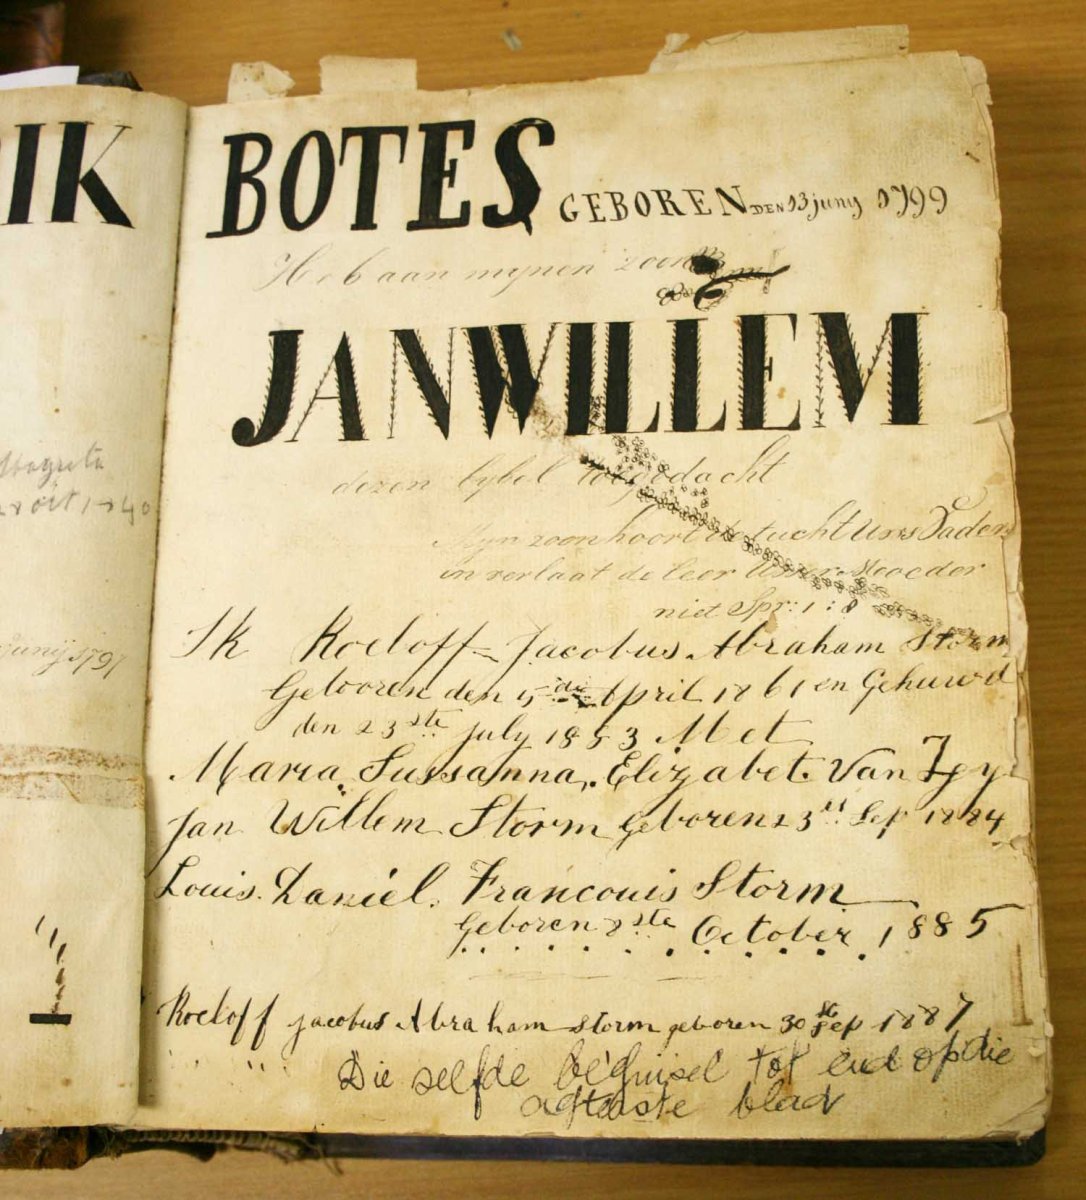 RIK
BOTES GEBOREN DEN 13 juny 1799
Heb aan mynen zoon
JAN WILLEM
dezen bybel toegedacht
Myn zoon hoort de tucht Uws Vaders
en verlaat de leer Uwer Moeder
niet Spr: 1: 8
Ik Roeloff Jacobus Abraham Storm
Gebooren den 5 de April 1861 en Gehuwd
den 23ste July 1883 Met
Maria Sussanna Elizabet Van Zy
Jan Willem Storm Geboren 23 Sep 1884
Louis Daniel Francouis Storm
Geboren 8ste October 1885
Roeloff jacobus Abraham Storm geboren 30 st Sep 1887
Die selfde beginsel tot end op die
agterste blad
Magreta
oct 1840
Junij 1797